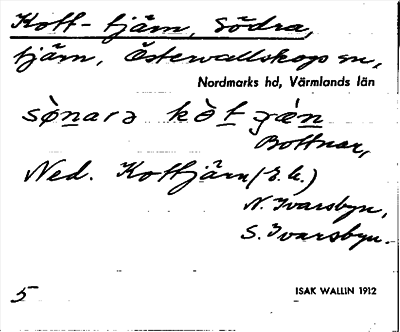 Kott-tjärn, Södra,
tjärn, Östervallskogs sn,
Nordmarks hd, Värmlands län
Bottnar,
Ned. Kottjärn (E.k.)
N. Ivarsbyn,
S. Ivarsbyn.
5
ISAK WALLIN 1912